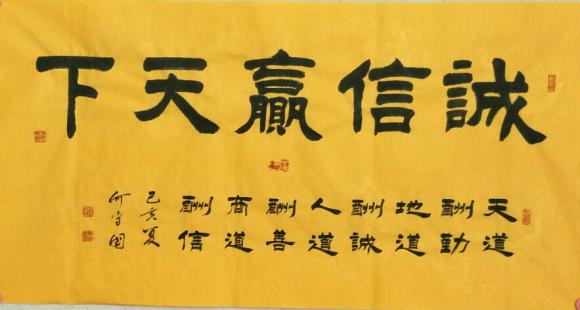 誠信贏天下
天道
酬勤
地道
酬誠
人道
酬善
商道
酬信
己亥夏